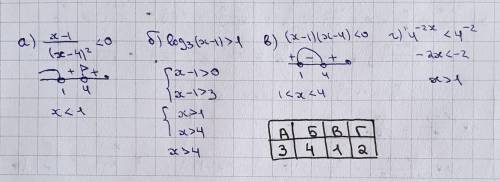 а) x-1/(x-4)² <0
- + р +
1 4
x<1
б) log₃(x-1)>1
{x-1>0
{x-1>3
{x>1
{x>4
x>4
в) (x-1)(x-4)<0
+ - +
1 4
1<x<4
г) 4^-2x < 4^-2
-2x<-2
x>1
А Б В Г
3 4 1 2